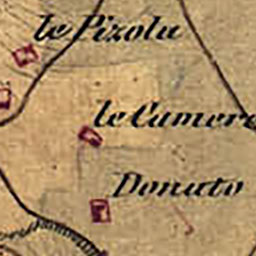 le Pizola
le Camere
Donato